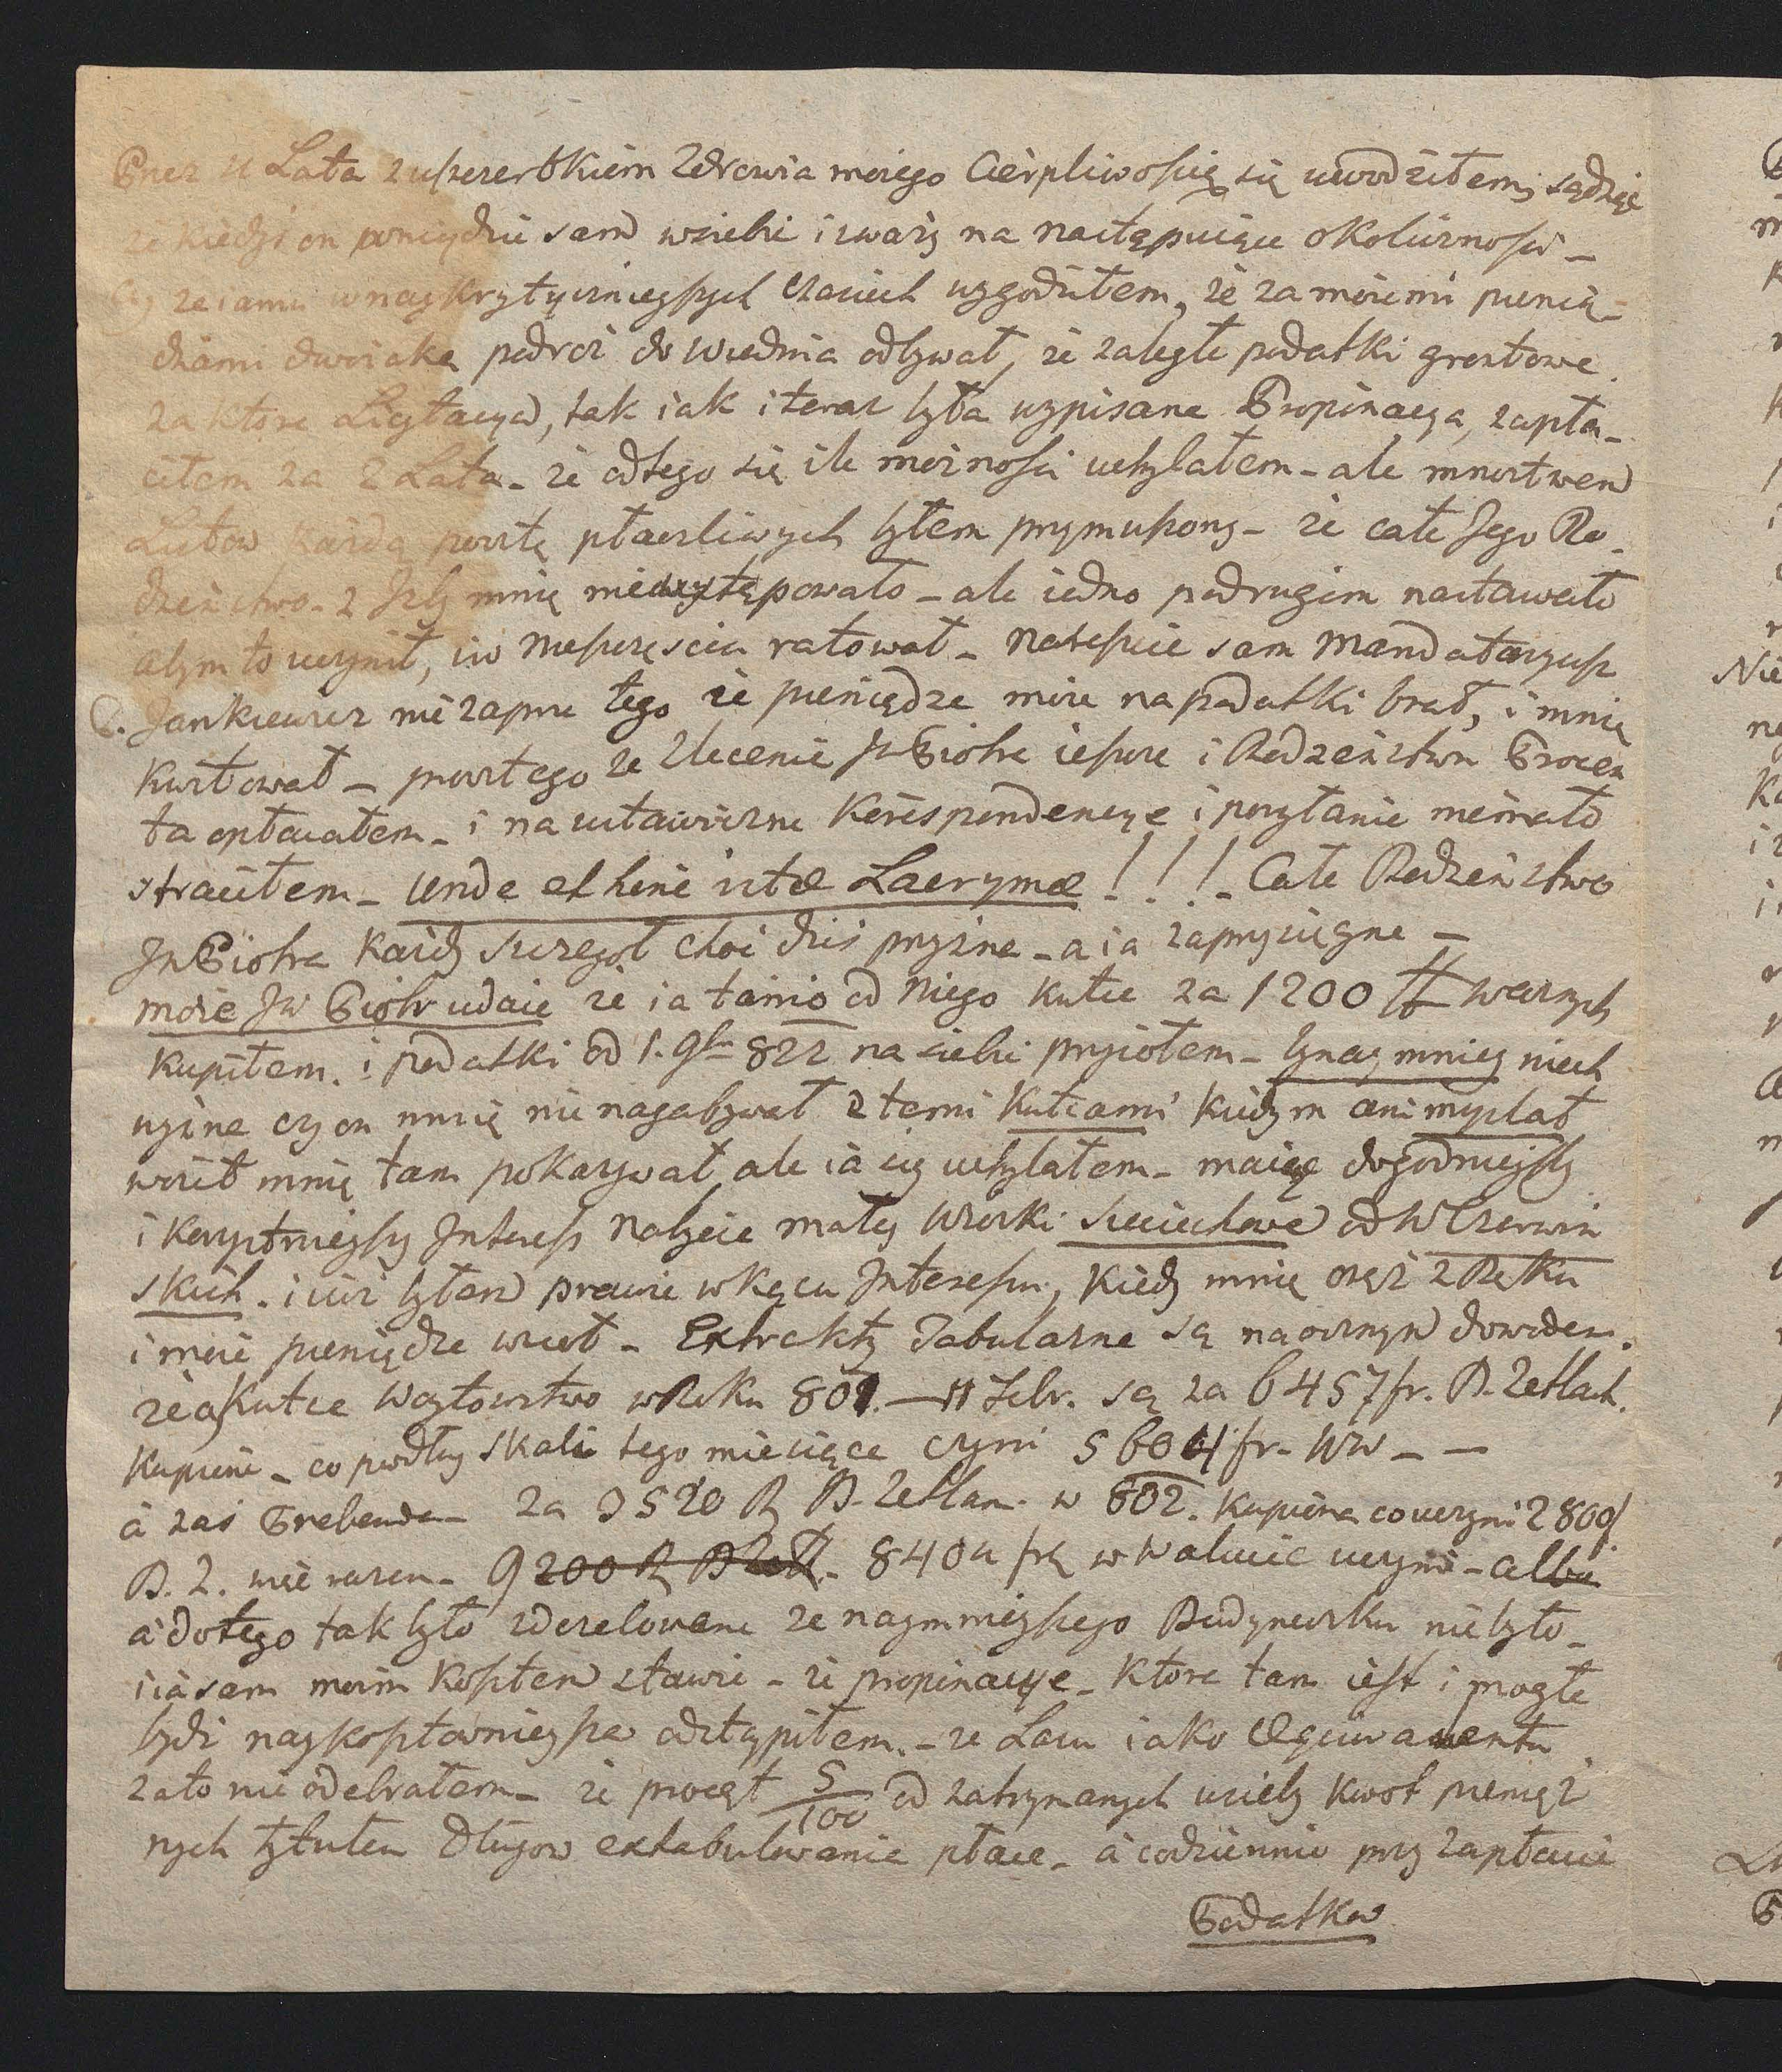 Przez 11 Lata z uszczerbkiem Zdrowia mojego Cierpliwością się uwodziłem, sądząc
że kiedyś on wnijdzie sam w siebie i zważy na następujące okoliczności _
że iamu w naykrytycznieyszych czasiech wygodziłem, że za moiemi pienię-
dzami dwoiaką podróż do Wiednia odbywał, że zaległe podatki gruntowe
za ktore Licytacya, tak iak i teraz była wypisana Propinacya, zapła-
ciłem za 2 Lata _ że od tego się ile możności uchylałem _ ale mnóstwem
Listow każdą pocztę płaczliwych byłem przymuszony _ że całe Jego Ro-
dzeństwo z Izby mnie nie występowało _ ale iedno po drugim nastawało
abym to uczynił, i w nieszczęściu ratował _ nareszcie sam Mandataryusz
P. Jankiewicz nie zaprze tego że pieniądze moie na podatki brał, i mnie
kwitował _ prócz tego że Zlecenie JP Piotra ieszcze i Rodzeństwu Procen
ta opłacałem _ i na ustawiczne Korespondencye i posyłanie niemało
straciłem _ Unde et hinc istæ Lacrymæ ! ! ! _ Całe Rodzeństwo
JP Piotra Każdy szczegół choć dziś przyzna _ a ia zaprzysięgnę _
może JW Piotr udaie że ia tanio od Niego Kutce za 1200 # ważnych
kupiłem. i podatki od 1. 9br 822 na siebie przyiołem _ bynaymniey niech
wyzna czy on mnie nie nagabywał z temi Kutcami kiedym ani myślał
woził mnie tam pokazywał ale ia się uchylałem _ maiąc dogodnieyszy
i korzystnieyszy Interess Nabycie małey Wioski Sieciechowe od W Czerwiń
skich. i iuż byłem prawie w końcu Interessu, kiedy mnie oręż z Ręku
i moie pieniądze wziął _ Extrakty Tabularne są naocznym dowodem.
że a/ Kutce Woytowstwo w Roku 801. _ 11 Febr. są za 6457 fr. B. Zetlach.
kupione _ co podług skali tego miesiąca czyni 5604 fr. WW _ _
à zaś Prebenda _ za 3520 R B. Zetlam. w 802. kupiona co uczyni 2800/
B. Z. więc razem _ 9200 R B Zett. 8404 fr w Walucie uczyni _ albo
à do tego tak było zdezelowane że naymnieyszego Budyneczku nie było _
i ia sam moim kosztem stawię _ że propinacye _ ktore tam iest i mogła
bydź naykosztownieysza odstąpiłem. _ że Lasu iako Equiwalentu
za to nie odebrałem _ że procęt 5/100 od zatrzymanych u siebie kwot pienięż
nych tytułem Długow extabulowanie płacę _ à codziennie przy zapłacie
Podatkow